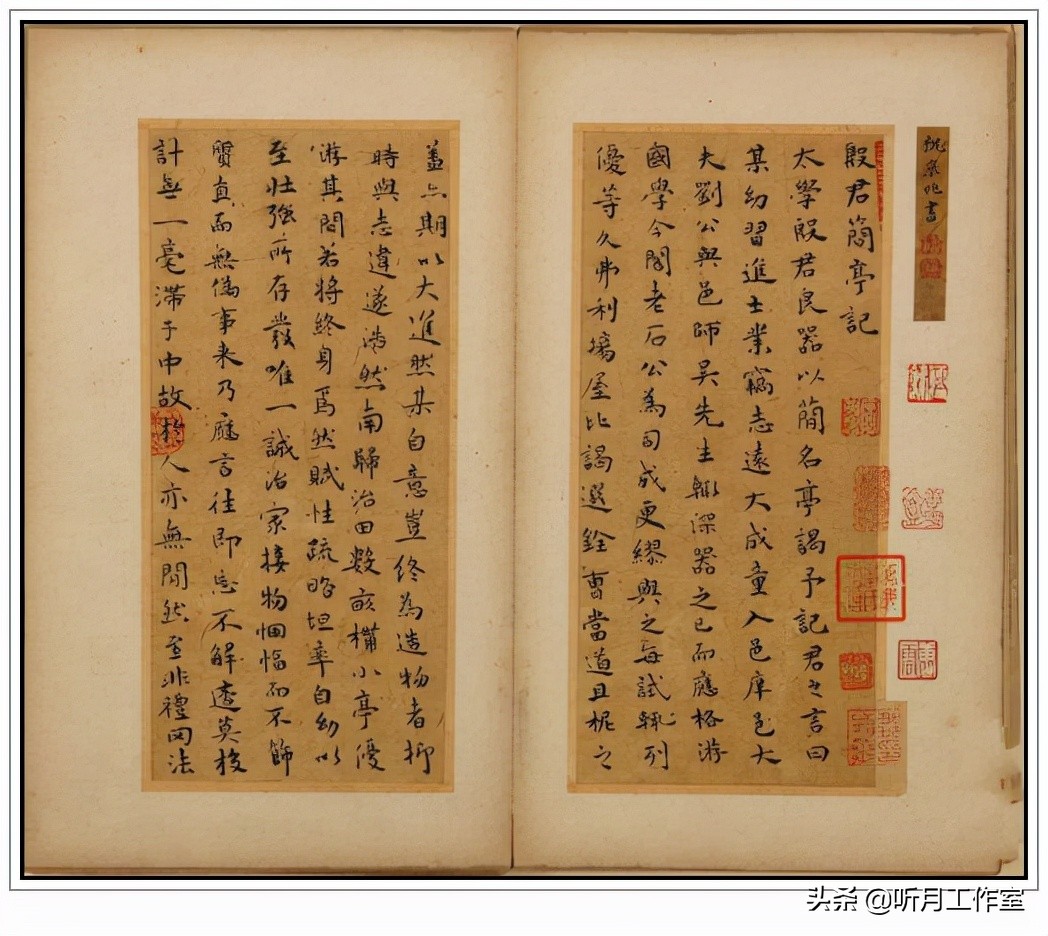 殷君簡亭記
太學殷君良器以簡名亭謁予記君之言曰
某幼習進士業竊志遠大成童入邑庠邑大
夫劉公與邑師吳先生輙深器之已而應格游
國學今閣老石公為司成更繆與之每試輒列
優等久弗利場屋比謁選銓曹當道且柅之
盖亦期以大進然某自意豈終為造物者抑
時與志違遂浩然南歸治田數畝構小亭優
游其間若將終身焉然賦性疏略坦率自幼以
至壯強所存發唯一誠治家接物悃愊而不飾
質直而無偽事来乃應言往即忘不解逢莫校
計無一毫滯于中故於人亦無間然至非禮罔法
祝京兆書
头条 @听月工作室